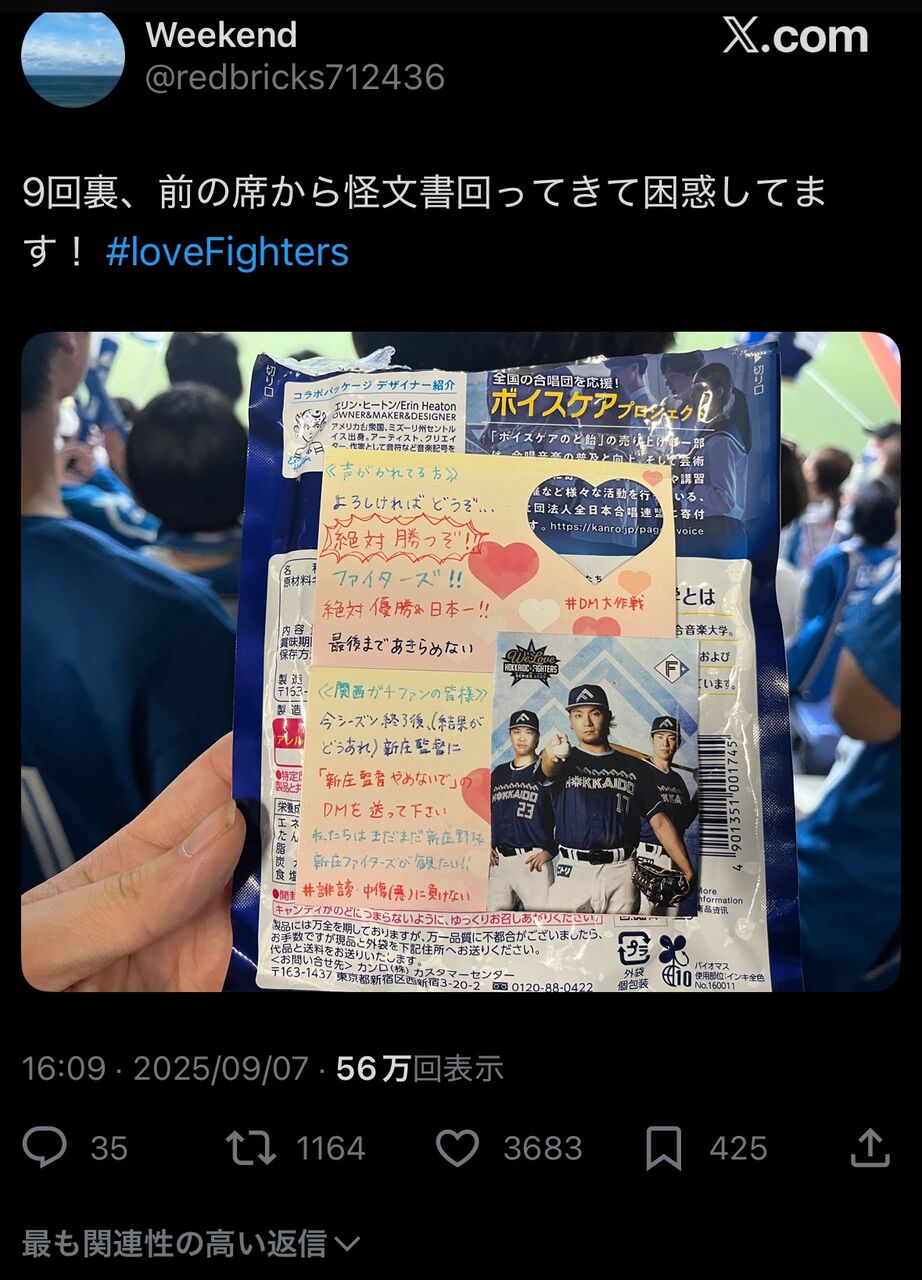 Weekend
@redbricks712436
X.com
9回裏、前の席から怪文書回ってきて困惑してま
す！ #loveFighters
切り口
コラボパッケージ デザイナー紹介
エリン・ヒートン/Erin Heaton
OWNER&MAKER&DESIGNER
アメリカ合衆国、ミズーリ州セントル
イス出身。アーティスト、クリエイ
ター、作家として音符など音楽記号を
全国の合唱団を応援！
ボイスケアプロジェクト
「ボイスケアのど飴」の売り上げの一部
は、合唱音楽の普及と向上、そして芸術
や講習
催など様々な活動を行っている、
団法人全日本合唱連盟に寄付
す。https://kanro.jp/pag voice
切り口
≪声がかれてる方≫
よろしければ どうぞ…
絶対 勝つぞ!!
ファイターズ!!
絶対 優勝&日本一!!
最後まであきらめない
#DM大作戦
たち
とは
音楽大学。
および
います。
≪関西ガチファンの皆様≫
今シーズン終了後、(結果が
どうあれ)新庄監督に
「新庄監督やめないで」の
DMを送って下さい
私たちはまだまだ新庄野球
新庄ファイターズが観たい!!
#誹謗・中傷(悪)に負けない
We Love
HOKKAIDO FIGHTERS
SERIES
F
HOKKAIDO
23
HOKKAIDO
17
HOKKA
名
原材料
内容
賞味期
保存方
製造
〒163-
製造
アレル
●特定
製品と
栄養成
エネ
たん
脂
炭
食塩
●開封
キャンディがのどにつまらないように、ゆっくりお召しあがりください。
製品には万全を期しておりますが、万一品質に不都合がございましたら、
お手数ですが現品と外袋を下記住所へお送りください。
代品と送料をお送りいたします。
<お問い合せ先> カンロ(株) カスタマーセンター
〒163-1437 東京都新宿区西新宿3-20-2 0120-88-0422
4 901351 001745
More
information
商品资讯
プラ
外袋
個包装
10
バイオマス
使用部位:インキ全色
No.160011
16:09 · 2025/09/07 · 56万回表示
35
1164
3683
425
最も関連性の高い返信